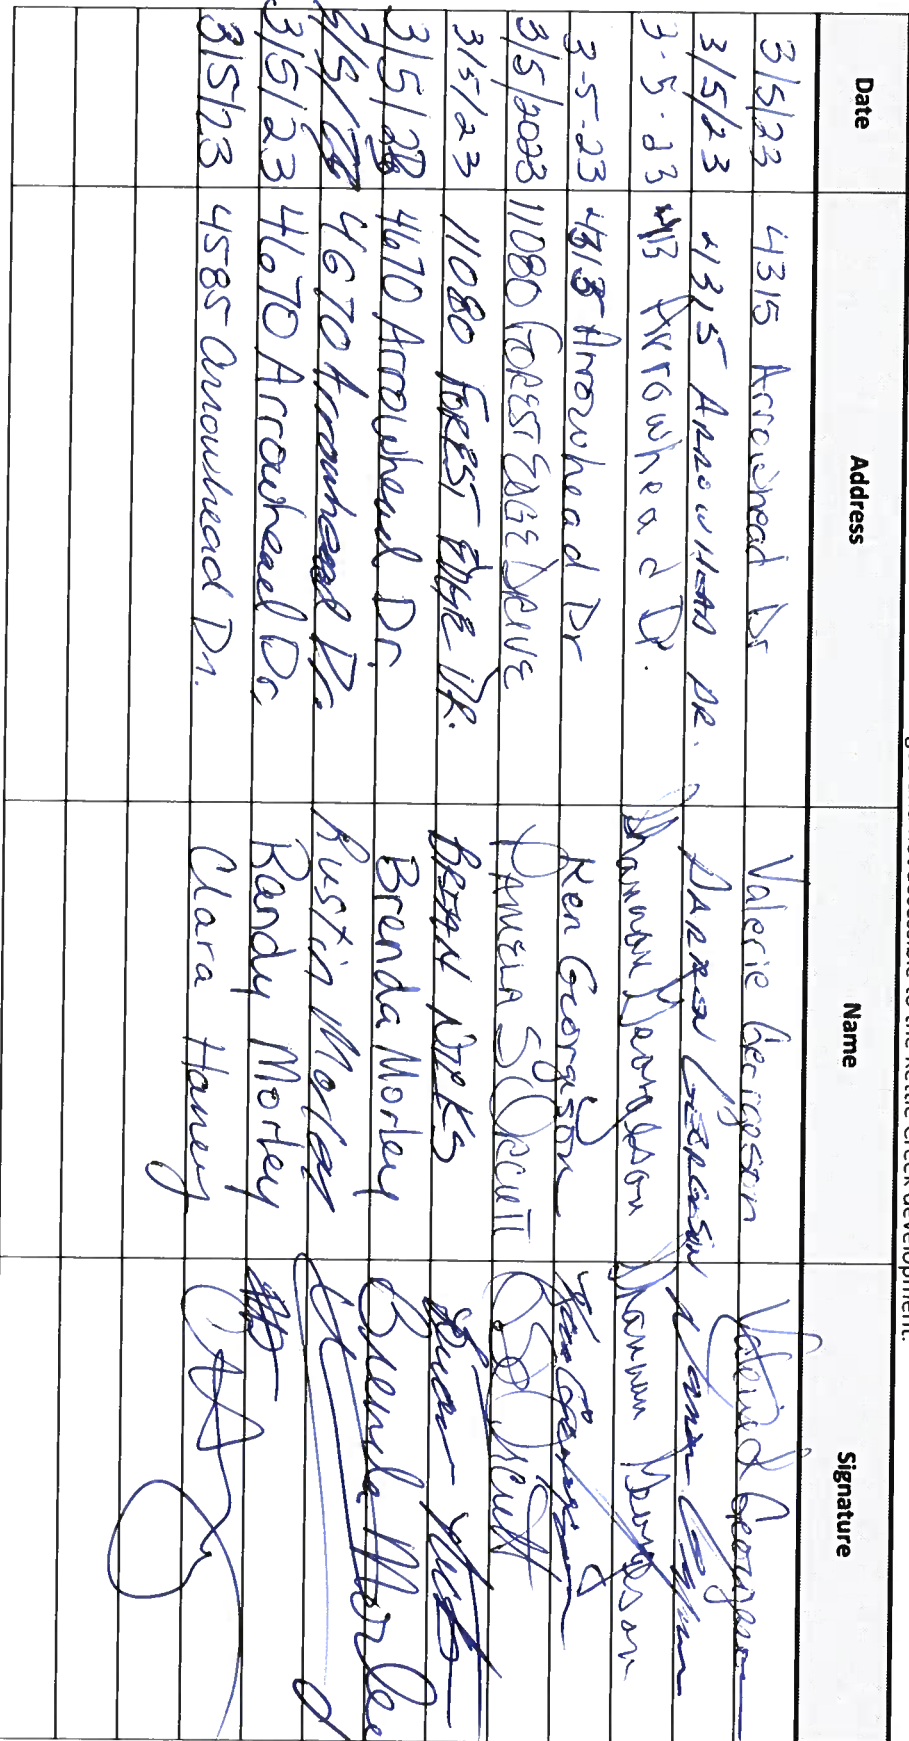 to the Kettle Creek development.
Date Address Name Signature
3/5/23 4315 Arrowhead Dr Valerie Georgeson Valerie Georgeson
3/5/23 4315 ARROWHEAD DR. DARREN GEORGESON
3-5-23 Arrowhead Dr. Shannon Shannon
3-5-23 4315 Arrowhead Dr Ken Georgeson Ken
3/5/2023 11080 FOREST EDGE DRIVE PAMELA S ORCUTT Orcutt
3/5/23 11080 FOREST EDGE DR. BRIAN
3/5/23 4670 Arrowhead Dr. Brenda Morley Brenda Morley
4670 Arrowhead Dr. Austin Morley
3/5/23 4670 Arrowhead Dr. Randy Morley
3/5/23 4585 Arrowhead Dr. Clara Haney